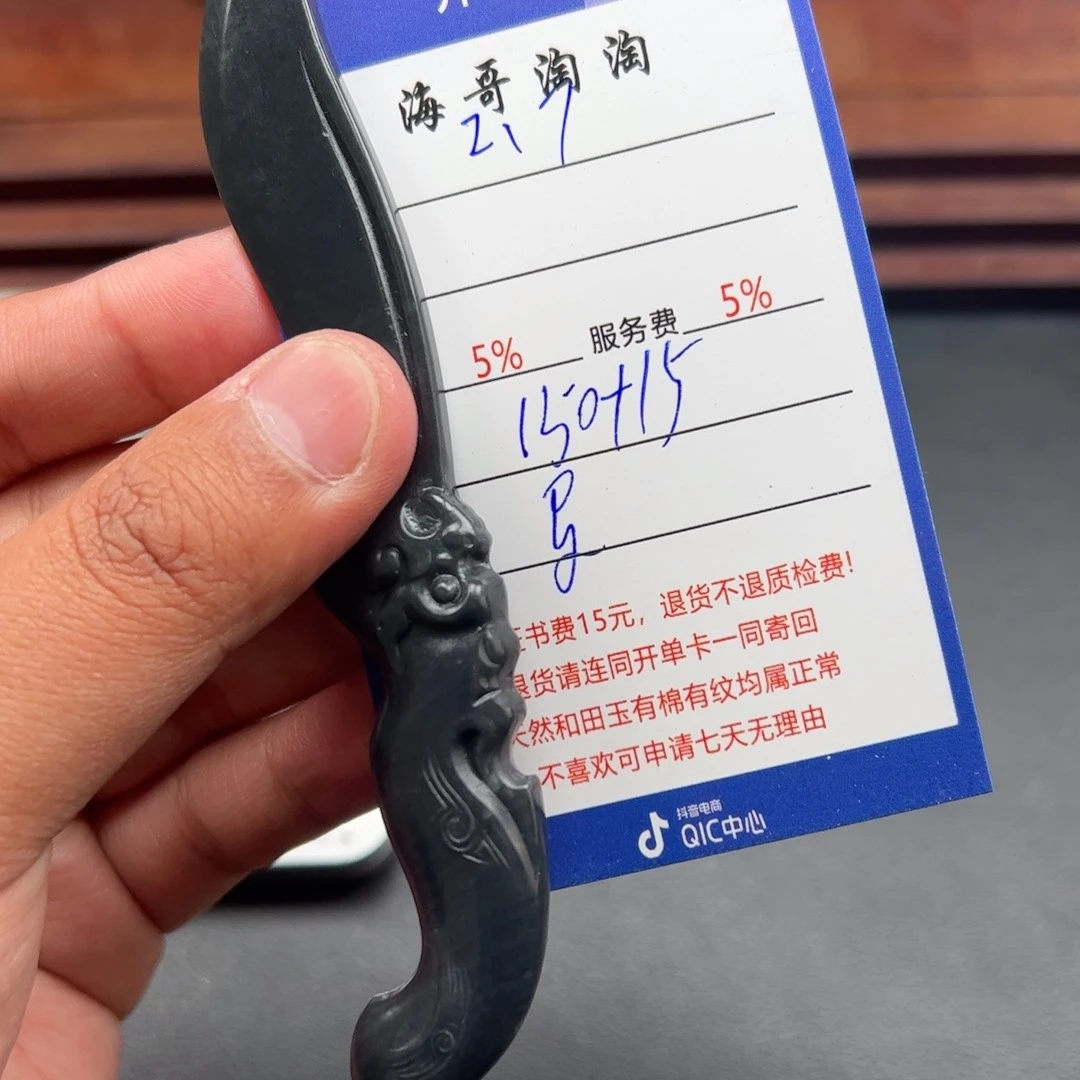 海哥淘淘
21 7
5% 服务费 5%
150+15
书费15元，退货不退质检费!
货请连同开单卡一同寄回
然和田玉有棉有纹均属正常
不喜欢可申请七天无理由
抖音电商
QIC中心